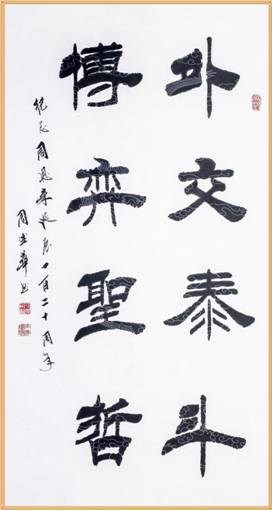 外交泰斗
博弈聖哲
纪念周恩来诞辰一百二十周年
周 華书